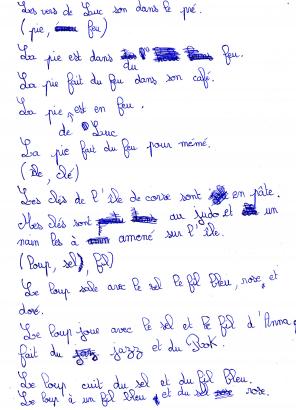 Les vers de Luc son dans le pré.
(pie, feu)
La pie est dans du feu.
La pie fait du feu dans son café.
La pie de Luc est en feu.
La pie fait du feu pour mémé.
(île, clé)
Les clés de l'île de corse sont en pâte.
Mes clés sont au judo et un
nain les à amené sur l'île.
(Loup, sel, fil)
Le loup sale avec le sel le fil bleu, rose, et
doré.
Le loup joue avec le sel et le fil d'Anna,
fait du jazz et du Rock.
Le loup cuit du sel et du fil bleu.
Le loup à un fil bleu et du sel rose.